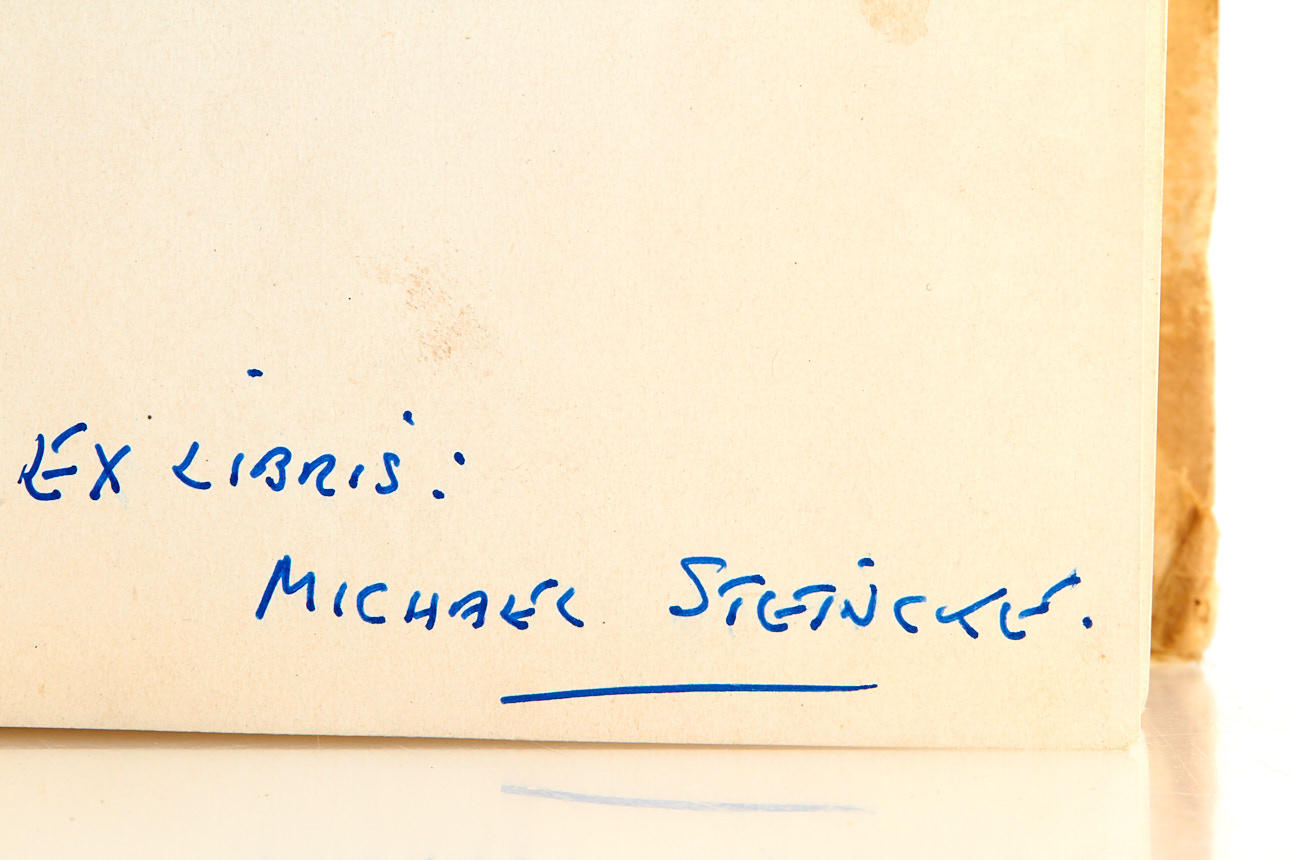 EX LIBRIS:
MICHAEL STEINCKE.